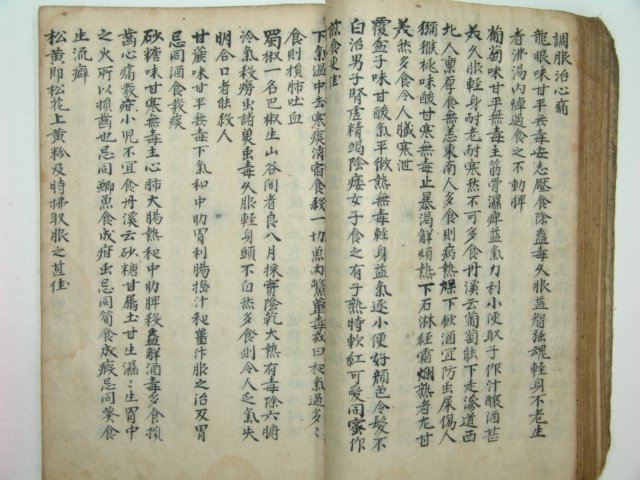 調服治心痛
龍眼味甘平無毒安志壓食除蠱毒久服益智強魂輕身不老生
者沸湯內焯過食之不動脾
葡萄味甘平無毒主筋骨濕痺益氣力利小便取子作汁釀酒甚
美久服輕身耐老耐寒然不可多食丹溪云葡萄能下走滲道西
北人稟厚食無恙東南人多食則病熱媒下飲酒宜防虫屎傷人
獼猴桃味酸甘寒無毒止暴渴解煩熱下石淋經霜爛熟者尤甘
美然多食令人臟寒泄
覆盆子味甘酸氣平微熱無毒輕身益氣逐小便好顏色令髮不
白治男子腎虛精竭陰痿女子食之有子熟時軟紅可愛同蜜作
煎食更佳
下氣溫中去寒痰消宿食殺一切魚肉鱉蕈毒或曰和氣過多〻
食則損肺吐血
蜀椒一名巴椒生山谷間者良八月採實陰乾大熱有毒除六腑
冷氣殺癆虫諸蟲毒久服輕身頭不白然多食則令人乏氣失
明合口者能殺人
甘蔗味甘平無毒下氣和中助胃利腸搗汁和薑汁服之治反胃
忌同酒食發痰
砂糖味甘寒無毒主心肺大腸熱和中助脾殺蠱解酒毒多食損
齒心痛發疳小兒不宜食丹溪云砂糖甘屬土甘生濕〻生胃中
之火所以損齒也忌同鯽魚食成疳虫忌同筍食成瘕忌同葵食
生流癖
松黃即松花上黃粉及時拂取服之甚佳